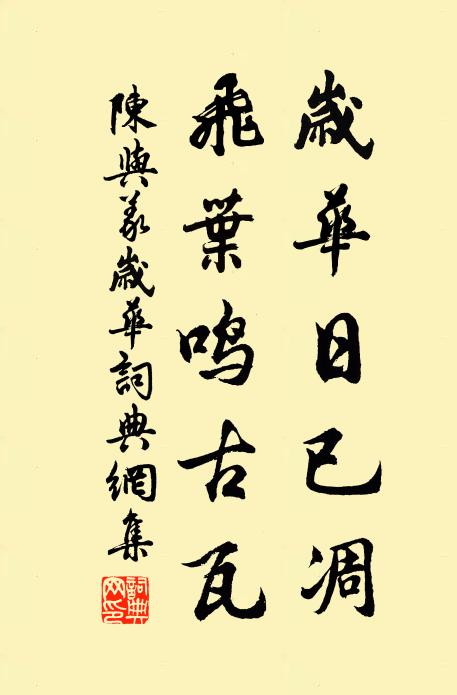 歲華日已凋
飛葉鳴古瓦
陳與義歲華詞典網集
詞典網印